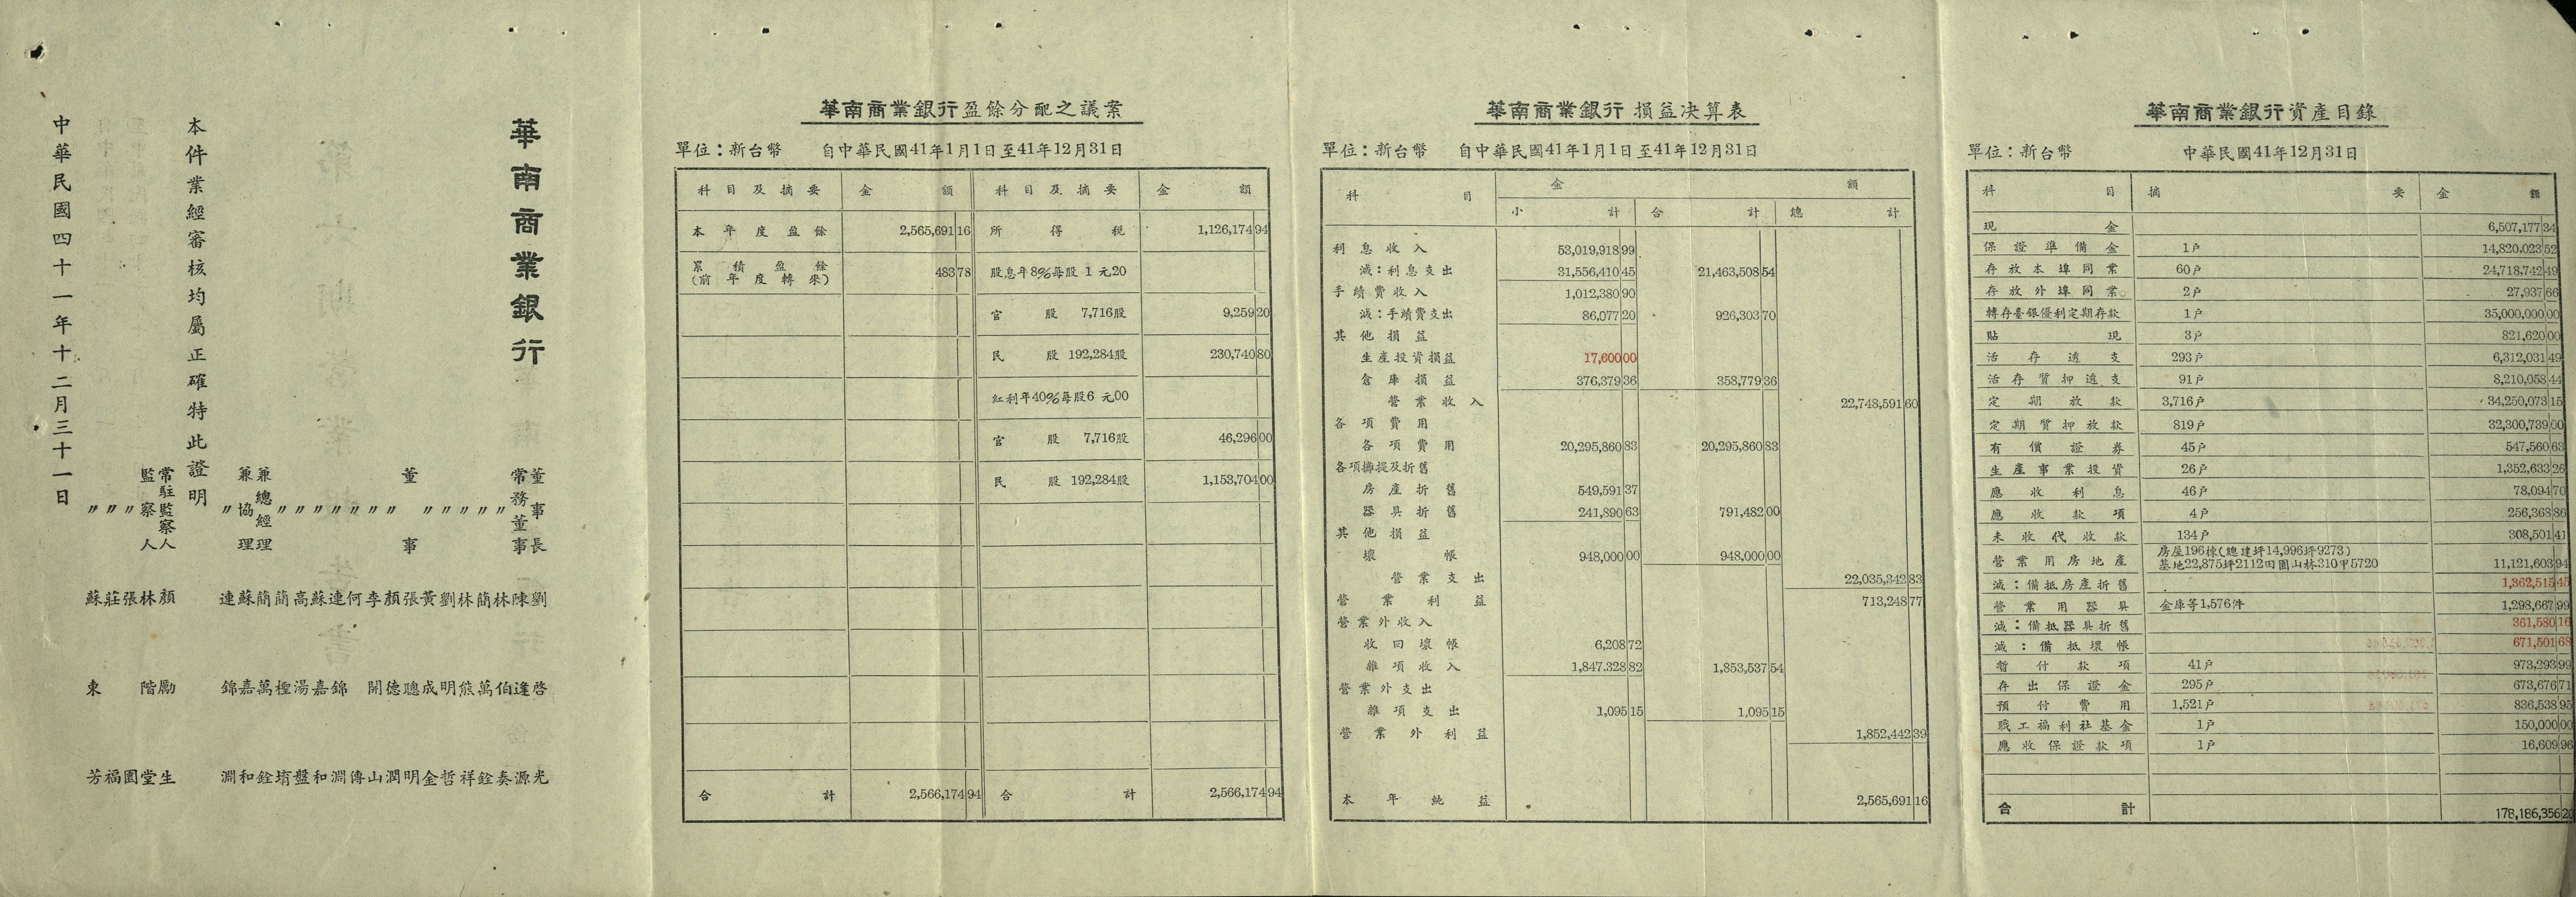 華南商業銀行
董事長 劉啓光
常務董事 陳逢源
〃 林伯奏
〃 簡萬銓
〃 林熊祥
〃 劉明哲
〃 黃成金
董事 張聰明
〃 顏德潤
〃 李開山
〃 何傳
〃 連錦淵
〃 蘇嘉和
〃 高湯盤
〃 簡檉堉
兼總經理 簡萬銓
兼協理 蘇嘉和
〃 連錦淵
本件業經審核均屬正確特此證明
常駐監察人 顏勵生
監察人 林階堂
〃 張園
〃 莊福
〃 蘇東芳
中華民國四十一年十二月三十一日
華南商業銀行盈餘分配之議案
單位：新台幣 自中華民國41年1月1日至41年12月31日
科目及摘要 金額 科目及摘要 金額
本年度盈餘 2,565,691 16 所得稅 1,126,174 94
累積盈餘 483 78 股息年8%每股1元20
(前年度轉來)
官股 7,716股 9,259 20
民股 192,284股 230,740 80
紅利年40%每股6元00
官股 7,716股 46,296 00
民股 192,284股 1,153,704 00
合計 2,566,174 94 合計 2,566,174 94
華南商業銀行損益决算表
單位：新台幣 自中華民國41年1月1日至41年12月31日
科目 金額
小計 合計 總計
利息收入 53,019,918 99
減：利息支出 31,556,410 45 21,463,508 54
手續費收入 1,012,380 90
減：手續費支出 86,077 20 926,303 70
其他損益
生產投資損益 17,600 00
倉庫損益 376,379 36 358,779 36
營業收入 22,748,591 60
各項費用
各項費用 20,295,860 83 20,295,860 83
各項攤提及折舊
房產折舊 549,591 37
器具折舊 241,890 63 791,482 00
其他損益
壞帳 948,000 00 948,000 00
營業支出 22,035,342 83
營業利益 713,248 77
營業外收入
收回壞帳 6,208 72
雜項收入 1,847,328 82 1,853,537 54
營業外支出
雜項支出 1,095 15 1,095 15
營業外利益 1,852,442 39
本年純益 2,565,691 16
華南商業銀行資產目錄
單位：新台幣 中華民國41年12月31日
科目 摘要 金額
現金 6,507,177 34
保證準備金 1戶 14,820,023 52
存放本埠同業 60戶 24,718,742 49
存放外埠同業 2戶 27,937 66
轉存臺銀優利定期存款 1戶 35,000,000 00
貼現 3戶 821,620 00
活存透支 293戶 6,312,031 49
活存質押透支 91戶 8,210,058 44
定期放款 3,716戶 34,250,073 15
定期質押放款 819戶 32,300,739 00
有價證券 45戶 547,560 63
生產事業投資 26戶 1,352,633 26
應收利息 46戶 78,094 70
應收款項 4戶 256,363 86
未收代收款 134戶 308,501 41
營業用房地產 房屋196棟(總建坪14,996坪9273)
基地22,875坪2112田園山林310甲5720 11,121,603 94
減：備抵房產折舊 1,362,515 45
營業用器具 金庫等1,576件 1,298,667 99
減：備抵器具折舊 361,580 16
減：備抵壞帳 671,501 68
暫付款項 41戶 973,293 99
存出保證金 295戶 673,676 71
預付費用 1,521戶 836,538 95
職工福利社基金 1戶 150,000 00
應收保證款項 1戶 16,609 96
合計 178,186,356 20